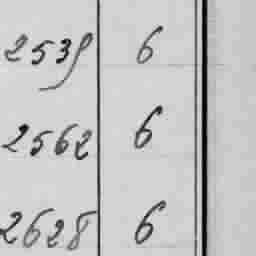 2539 6
2562 6
2628 6